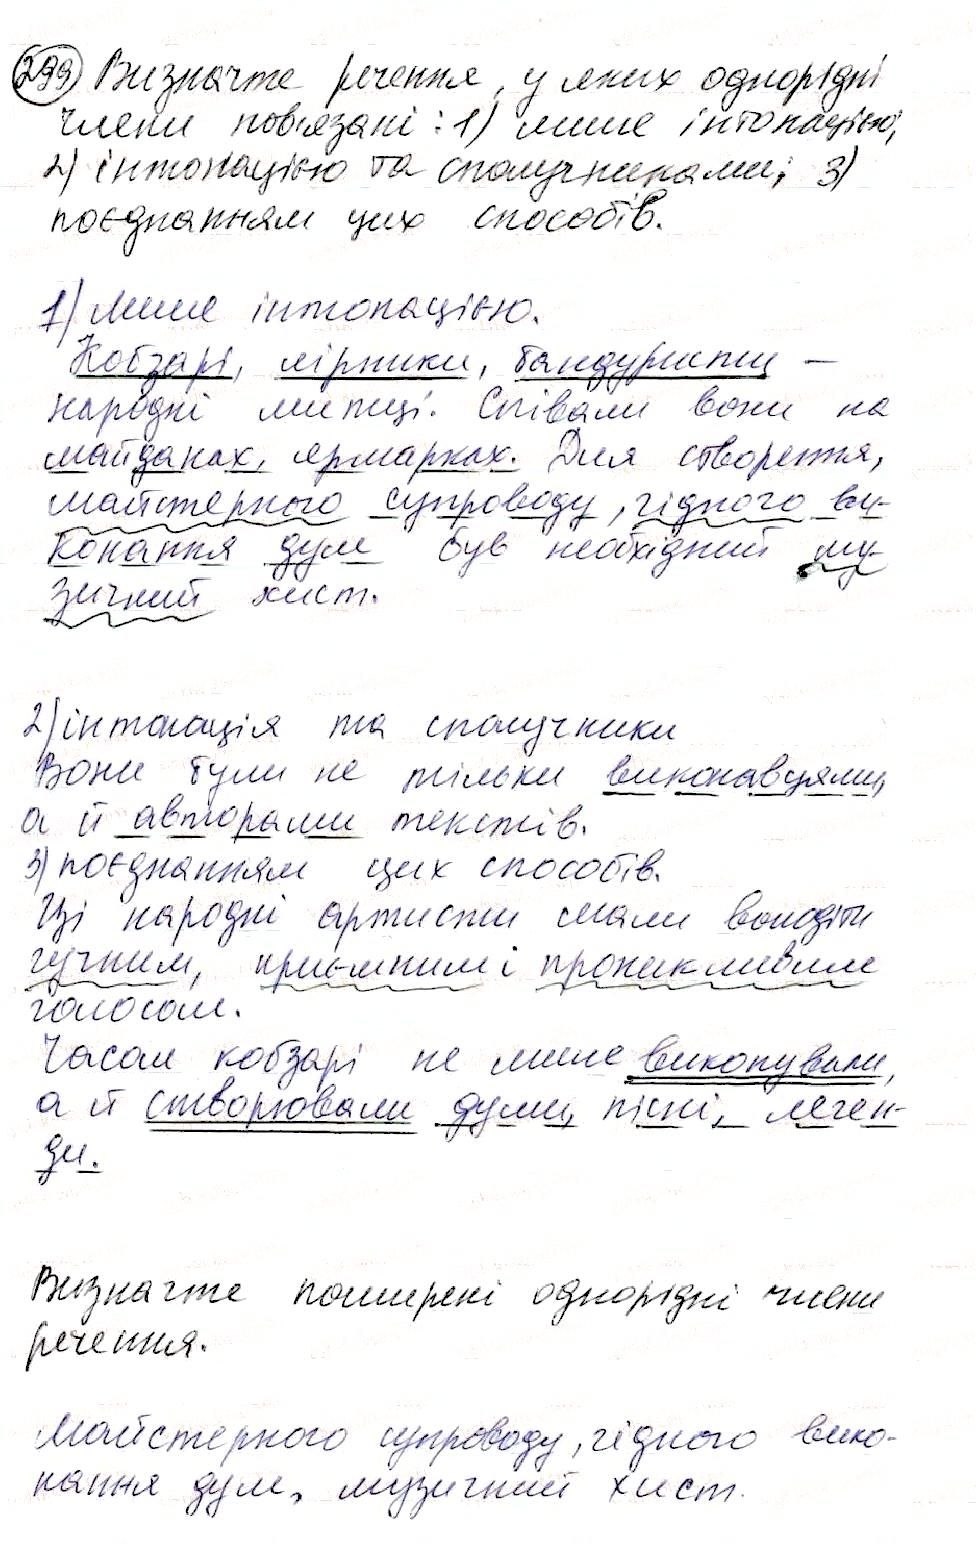 299 Визначте речення, у яких однорідні
члени пов'язані: 1) лише інтонацією;
2) інтонацією та сполучниками; 3)
поєднанням цих способів.
1) Лише інтонацією.
Кобзарі, лірники, бандуристи –
народні митці. Співали вони на
майданах, ярмарках. Для створення,
майстерного супроводу, гідного ви-
конання дум був необхідний му-
зичний хист.
2) інтонація та сполучники
Вони були не тільки виконавцями,
а й авторами текстів.
3) поєднанням цих способів.
Ці народні артисти мали володіти
гучним, приємним і проникливим
голосом.
Часом кобзарі не лише виконували,
а й створювали думи, пісні, леген-
ди.
Визначте поширені однорідні члени
речення.
Майстерного супроводу, гідного вико-
нання дум, музичний хист.